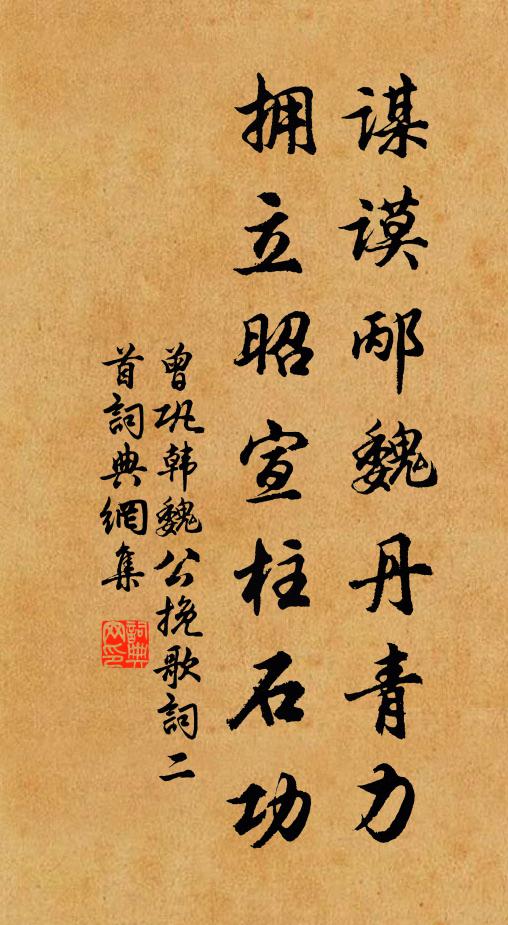 谋谟邴魏丹青力
拥立昭宣柱石功
曾巩韩魏公挽歌詞二
首詞典網集
詞典
网印